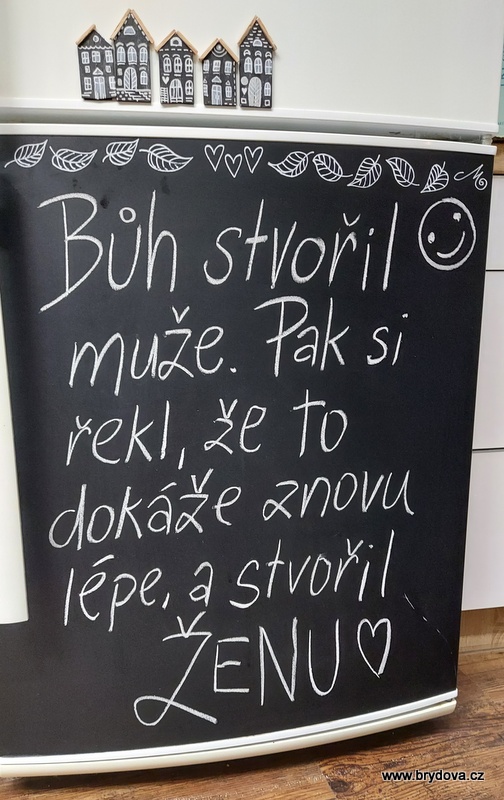 Bůh stvořil
muže. Pak si
řekl, že to
dokáže znovu
lépe, a stvořil
ŽENU
www.brydova.cz